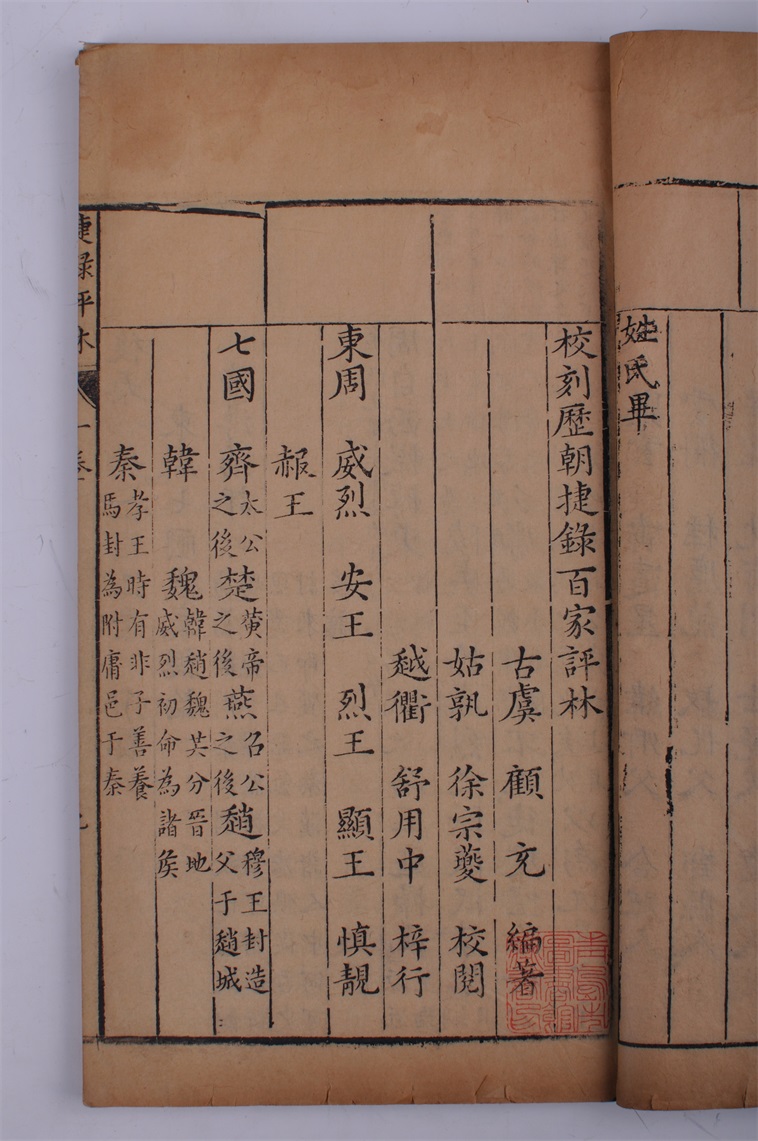 姓氏畢
校刻歷朝捷錄百家評林
古虞 顧充 編著
姑孰 徐宗夔 校閱
越衢 舒用中 梓行
東周 威烈 安王 烈王 顯王 慎靚
赧王
七國 齊太公之後楚黃帝之後燕召公之後趙穆王封造父于趙城
韓 魏韓趙魏共分晉地威烈初命為諸侯
秦孝王時有非子善養馬封為附庸邑于秦
捷錄評林 一卷